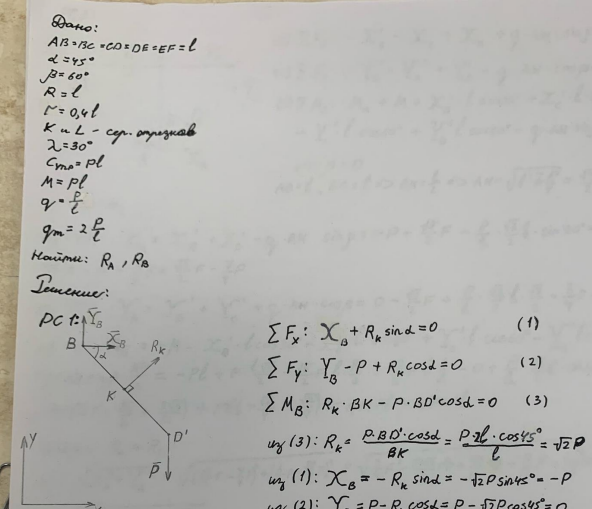 Дано:
AB=BC=CD=DE=EF=l
α=45°
β=60°
R=l
r=0,4l
K и L - сер. отрезков
λ=30°
Cтр=Pl
M=Pl
q=P/l
qm=2P/l
Найти: R_A, R_B
Решение:
РС 1:
Y̅_B
X̅_B
B
α
R_K
K
D'
P̅
y
ΣF_x: X_B + R_K sinα = 0 (1)
ΣF_y: Y_B - P + R_K cosα = 0 (2)
ΣM_B: R_K·BK - P·BD'cosα = 0 (3)
из (3): R_K = P·BD'·cosα/BK = P·2l·cos45°/l = √2P
из (1): X_B = -R_K sinα = -√2P sin45° = -P
из (2): Y = P - R cosα = P - √2P cos45° = 0